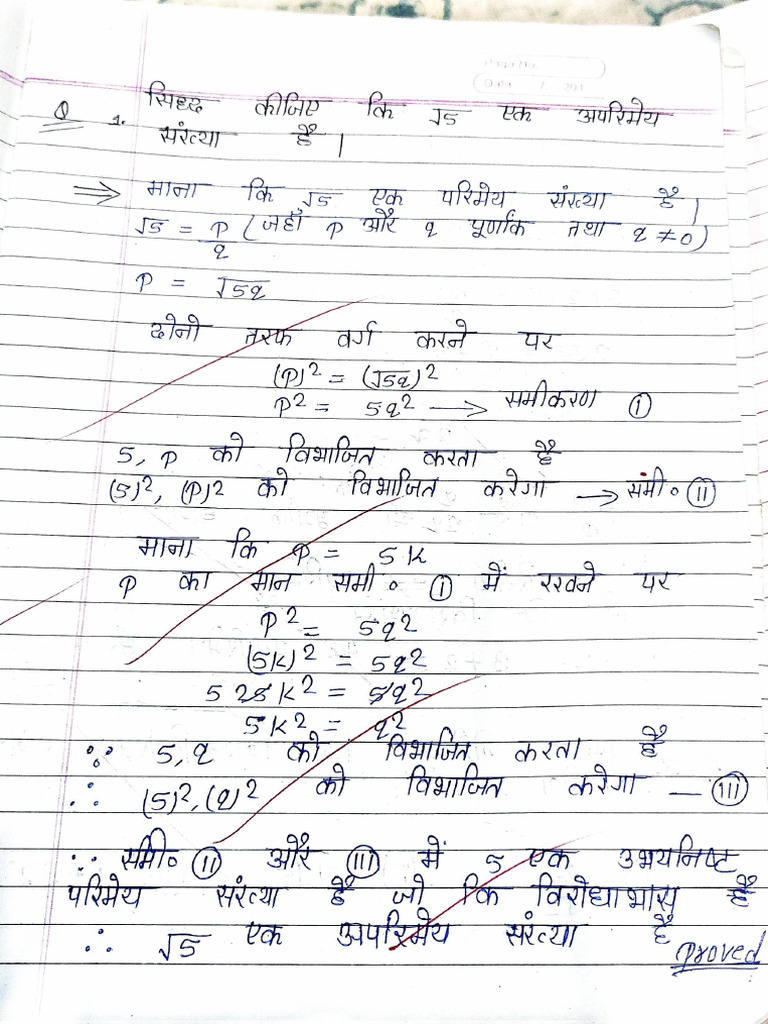 Page No.
Date / 201
Q 1. सिध्द कीजिए कि √5 एक अपरिमेय
संख्या है |
⇒ माना कि √5 एक परिमेय संख्या है |
√5 = P/q (जहाँ P और q पूर्णांक तथा q ≠ 0)
P = √5q
दोनो तरफ वर्ग करने पर
(P)² = (√5q)²
P² = 5q² → समीकरण (I)
5, P को विभाजित करता है
(5)², (P)² को विभाजित करेगा → समी० (II)
माना कि P = 5k
P का मान समी० (I) में रखने पर
P² = 5q²
(5k)² = 5q²
5 25k² = 5q²
5k² = q²
∵ 5, q को विभाजित करता है
∴ (5)², (q)² को विभाजित करेगा — (III)
∵ समी० (II) और (III) में 5 एक उभयनिष्ट
परिमेय संख्या है जो कि विरोधाभास है
∴ √5 एक अपरिमेय संख्या है
Proved